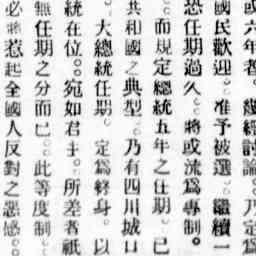 或六年者。幾經討論。乃定爲
國民歡迎。准予被選。繼續一
恐任期過久。將或流爲專制。
。而規定總統五年之任期。已
共和國之典型。乃有四川城口
。大總統任期。定爲終身。以
統在位。宛如君主。所差者祇
無任期之分而已。此等度制。
必將惹起全國人反對之惡感。